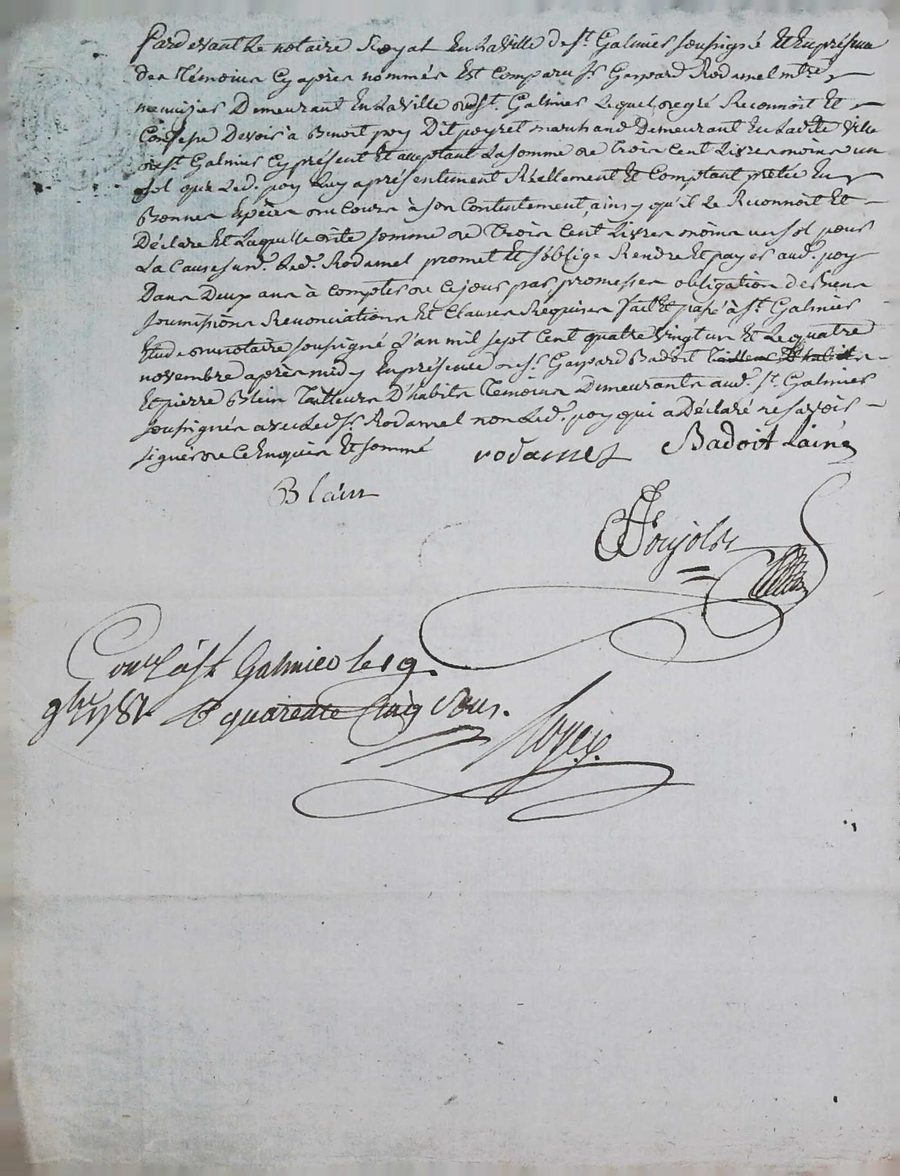 Pardevant Le notaire Royal En La Ville de St. Galmier soussigné Et En présence
Des Témoins Cy après nommés Est Comparu Sr. Gaspard Rodamel mtre.
menuisier Demeurant En La Ville de St. Galmier Lequel de gré Reconnoit Et
Confesse Devoir à Benoit poy Dit peyret marchand Demeurant En La dite Ville
de St. Galmier Cy présent Et acceptant La somme de Trois Cent Livres moins un
sol que Led. poy Luy a présentement Réellement Et Comptant prêtée En
Bonnes Espèces au Cours à son Contentement, ainsy qu'il Le Reconnoit Et
Déclare Et Laquelle dite somme de Trois Cent Livres moins un sol pour
La Cause susd. Led. Rodamel promet Et s'oblige Rendre Et payer aud. poy
Dans Deux ans à Compter de Ce jour par promesses obligation De Biens
soumissions Renonciations Et Clauses Requises fait Et passé à St. Galmier
Etude du notaire soussigné L'an mil sept Cent quatre Vingt un Et Le quatre
novembre après midy En présence de Sr. Gaspard Badoit
Et pierre Blein Tailleur D'habits Témoins Demeurants aud. St. Galmier
soussignés avec Led. Sr. Rodamel non Led. poy qui a Déclaré ne savoir
signer de Ce Enquis Et sommé
rodamel Badoit Lainé
Blein
Controllé à St Galmier le 19
9bre 1781 R quarente Cinq sous.